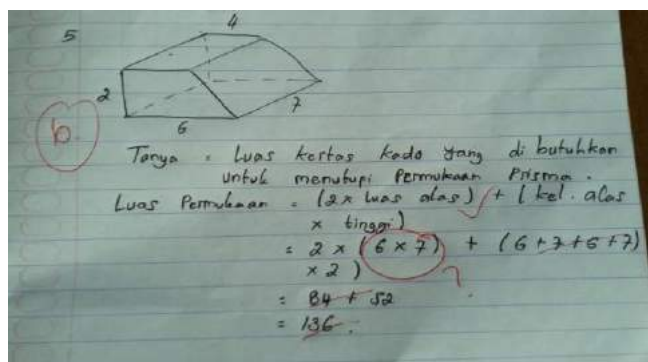 5
4
2
7
6
b
Tanya = Luas kertas kado yang di butuhkan
untuk menutupi Permukaan Prisma.
Luas Permukaan = (2x luas alas) + (kel. alas
x tinggi)
= 2 x (6 x 7) + (6+7+6+7)
x 2)
= 84 + 52
= 136.